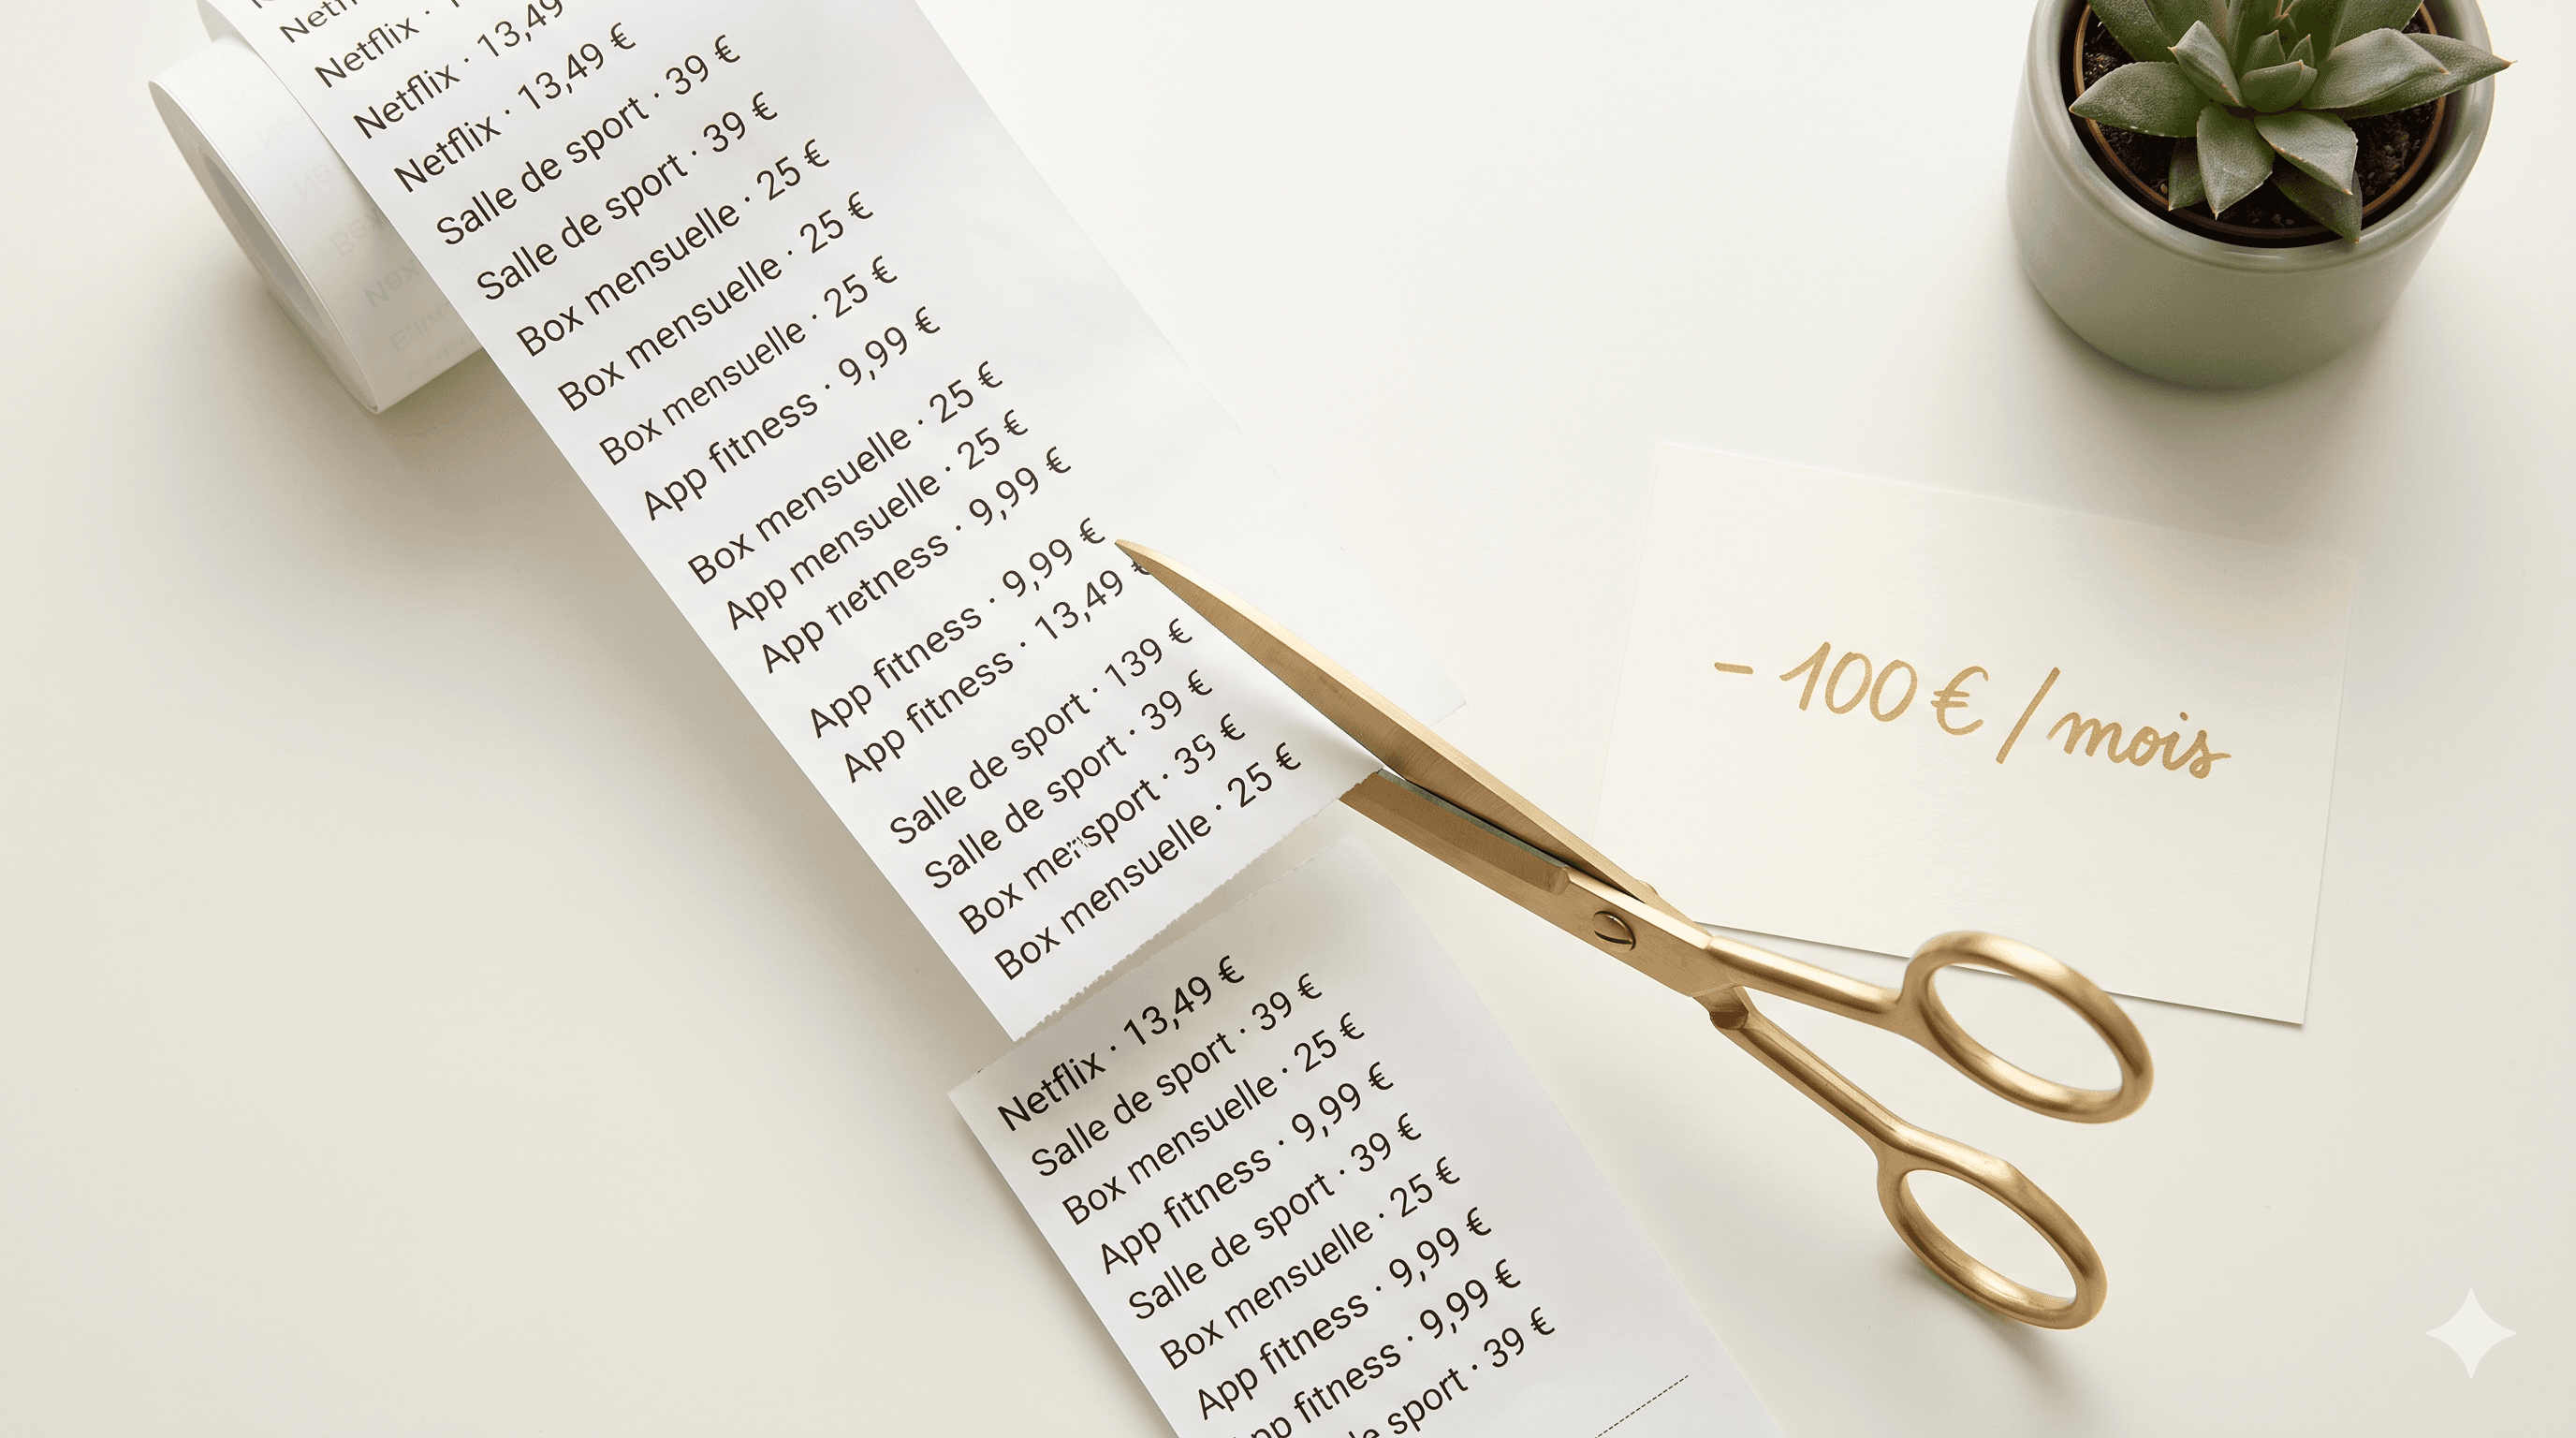 Netflix
Netflix ·
Netflix · 13,49
Netflix · 13,49 €
Salle de sport · 39 €
Salle de sport · 39 €
Box mensuelle · 25 €
Box mensuelle · 25 €
Box mensuelle · 25 €
App fitness · 9,99 €
Box mensuelle · 25 €
App mensuelle · 25 €
App rietness · 9,99 €
App fitness · 9,99 €
App fitness · 13,49 €
Salle de sport · 139 €
Salle de sport · 39 €
Box mensport · 39 €
Box mensuelle · 25 €
Netflix · 13,49 €
Salle de sport · 39 €
Box mensuelle · 25 €
App fitness · 9,99 €
Salle de sport · 39 €
Box mensuelle · 25 €
App fitness · 9,99 €
App fitness · 9,99 €
de sport · 39 €
- 100 € / mois